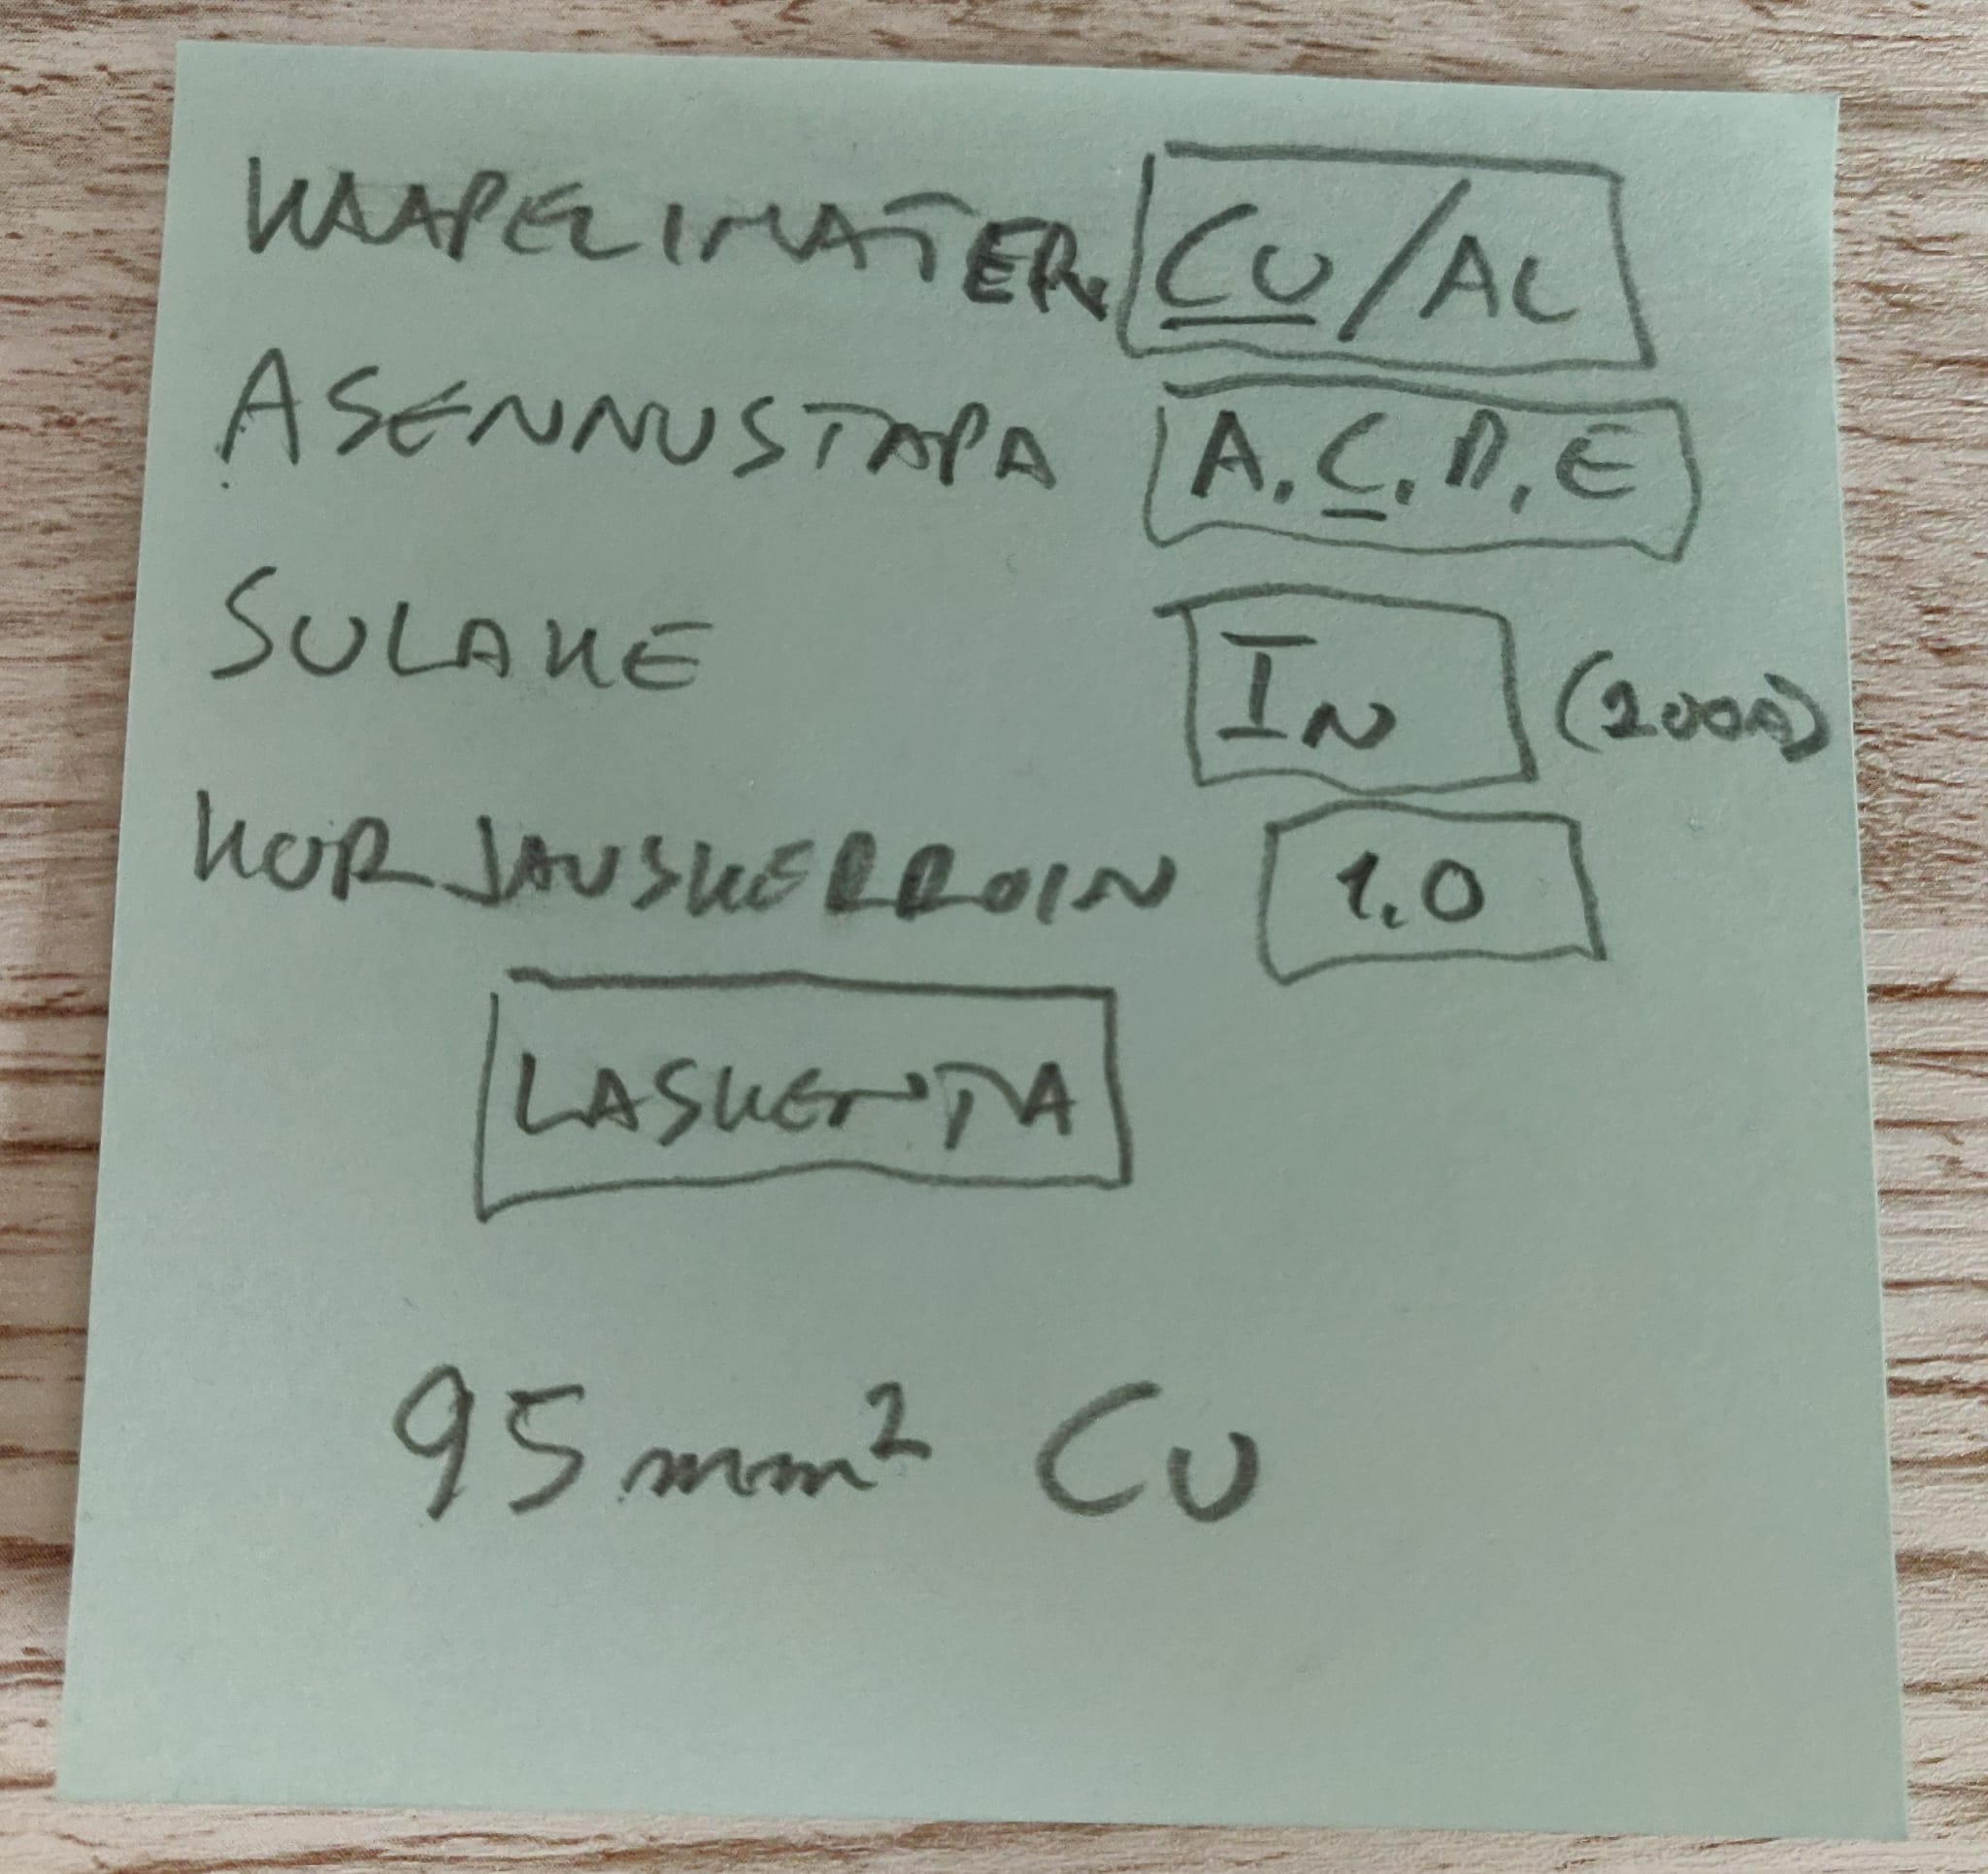 KAAPELIMATER. CU/AL
ASENNUSTAPA A, C, D, E
SULAKE IN (200A)
KORJAUSKERROIN 1.0
LASKENTA
95mm² CU